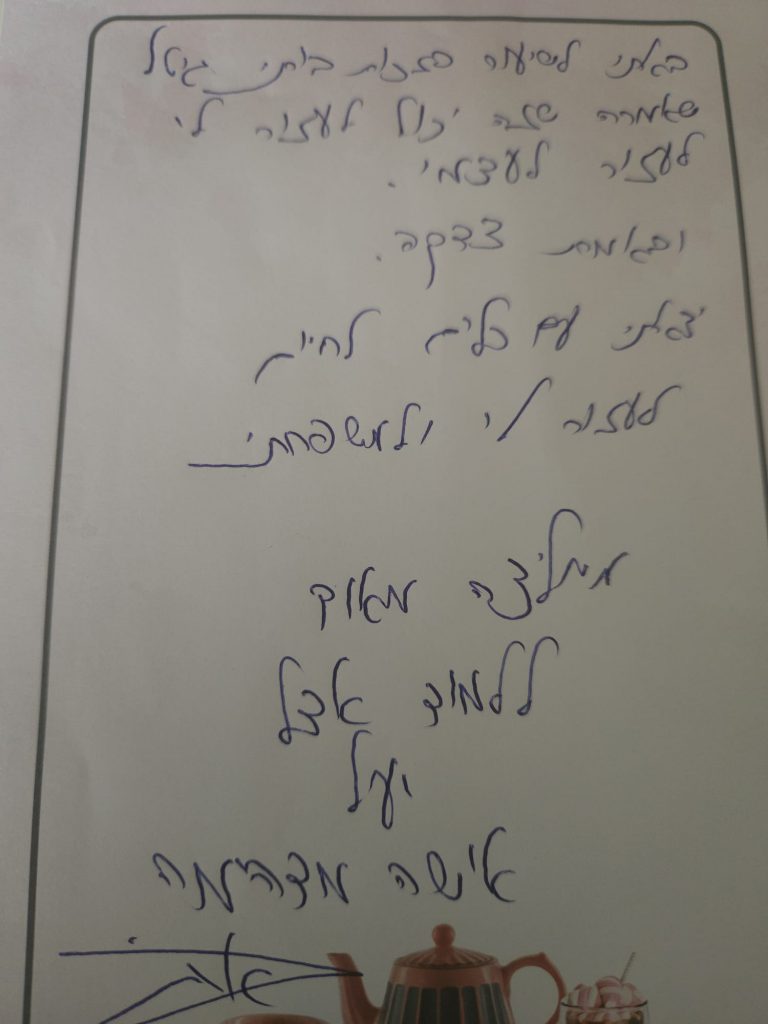 באתי לשיעור בזכות ביתי גיטל
שאמרה שזה יכול לעזור לי
לעזור לעצמי.
ובאמת צדקה.
יצאתי עם כלים לחיים
לעזור לי ולמשפחתי
ממליצה מאוד
ללמוד אצל
יעל
אישה מדהימה